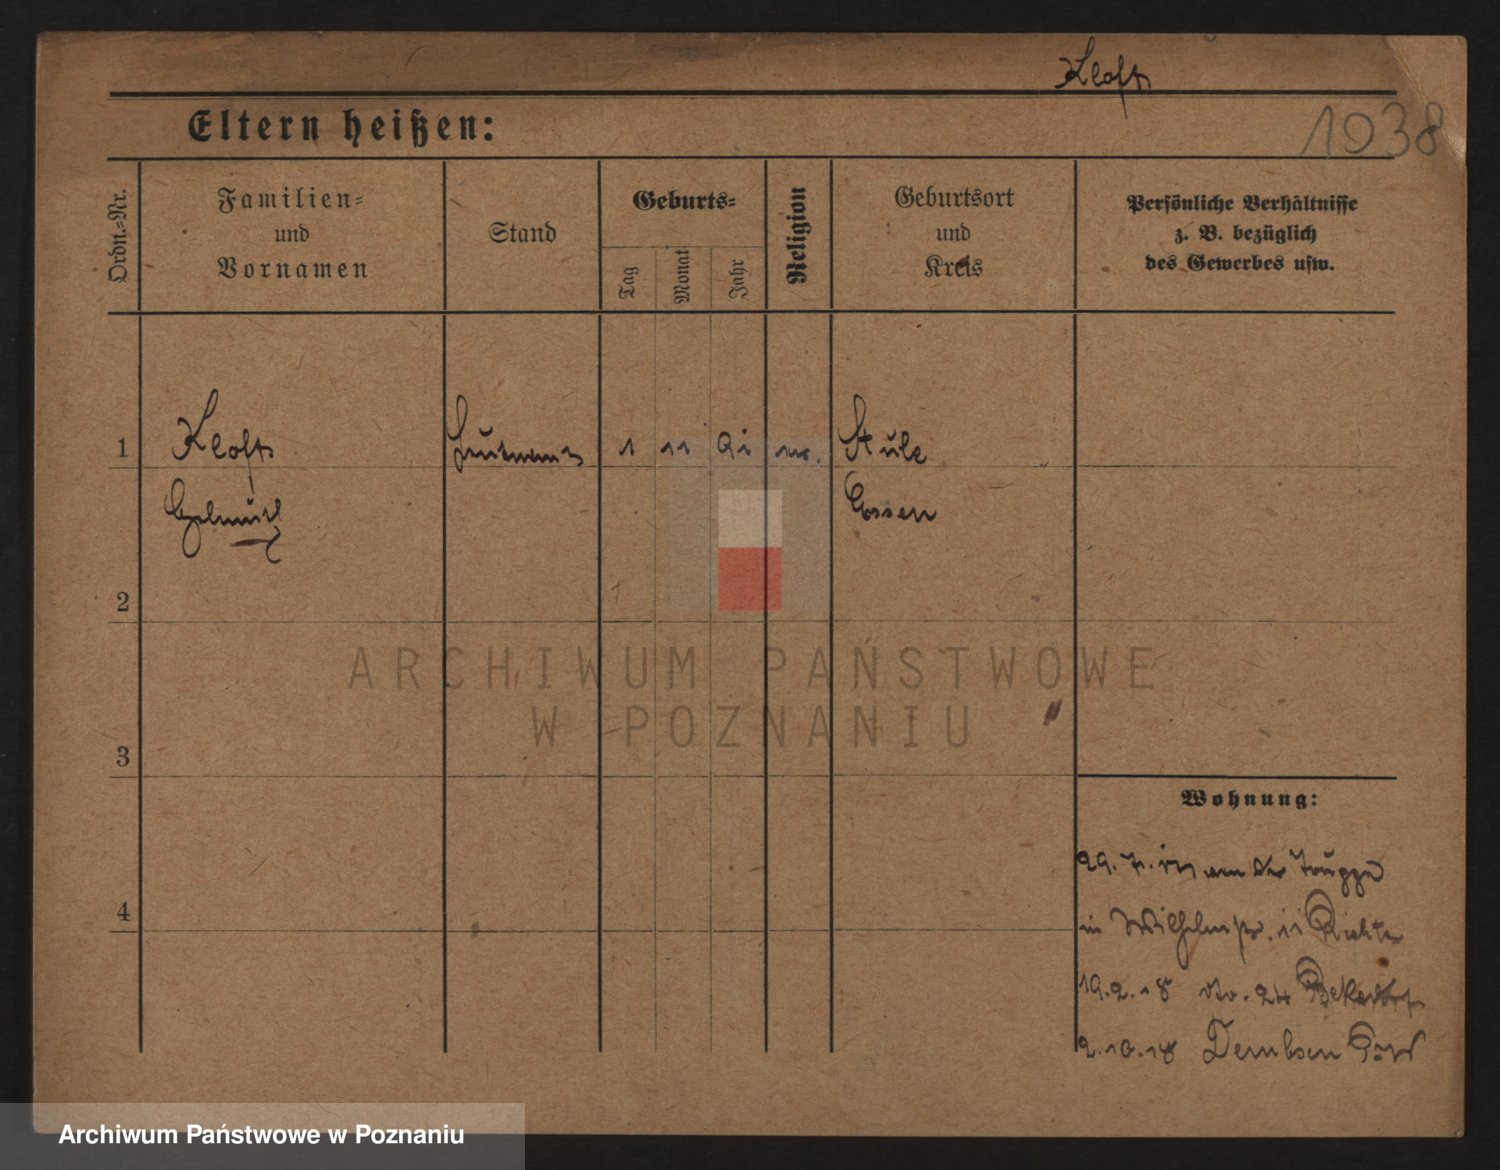 Kloft
1038
Eltern heißen:
Ordn.=Nr.
Familien=
und
Vornamen
Stand
Geburts=
Tag
Monat
Jahr
Religion
Geburtsort
und
Kreis
Persönliche Verhältnisse
z. B. bezüglich
des Gewerbes usw.
1
Kloft
Leutnant
1 11
Essen
2
3
4
Wohnung:
in Wilhelmstr. 11
19.2.18 24
2.10.18 Dembsen
ARCHIWUM PAŃSTWOWE
W POZNANIU
Archiwum Państwowe w Poznaniu